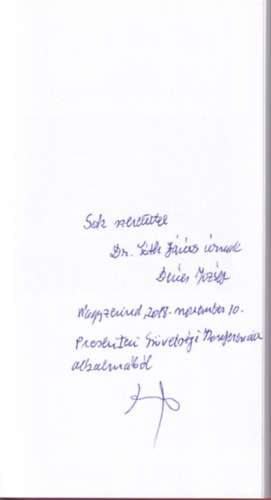 Sok szeretettel
Dr. Tóth János úrnak
Dénes József
Nagyzerind 2018. november 10.
Szövetségi Konferencia
alkalmából